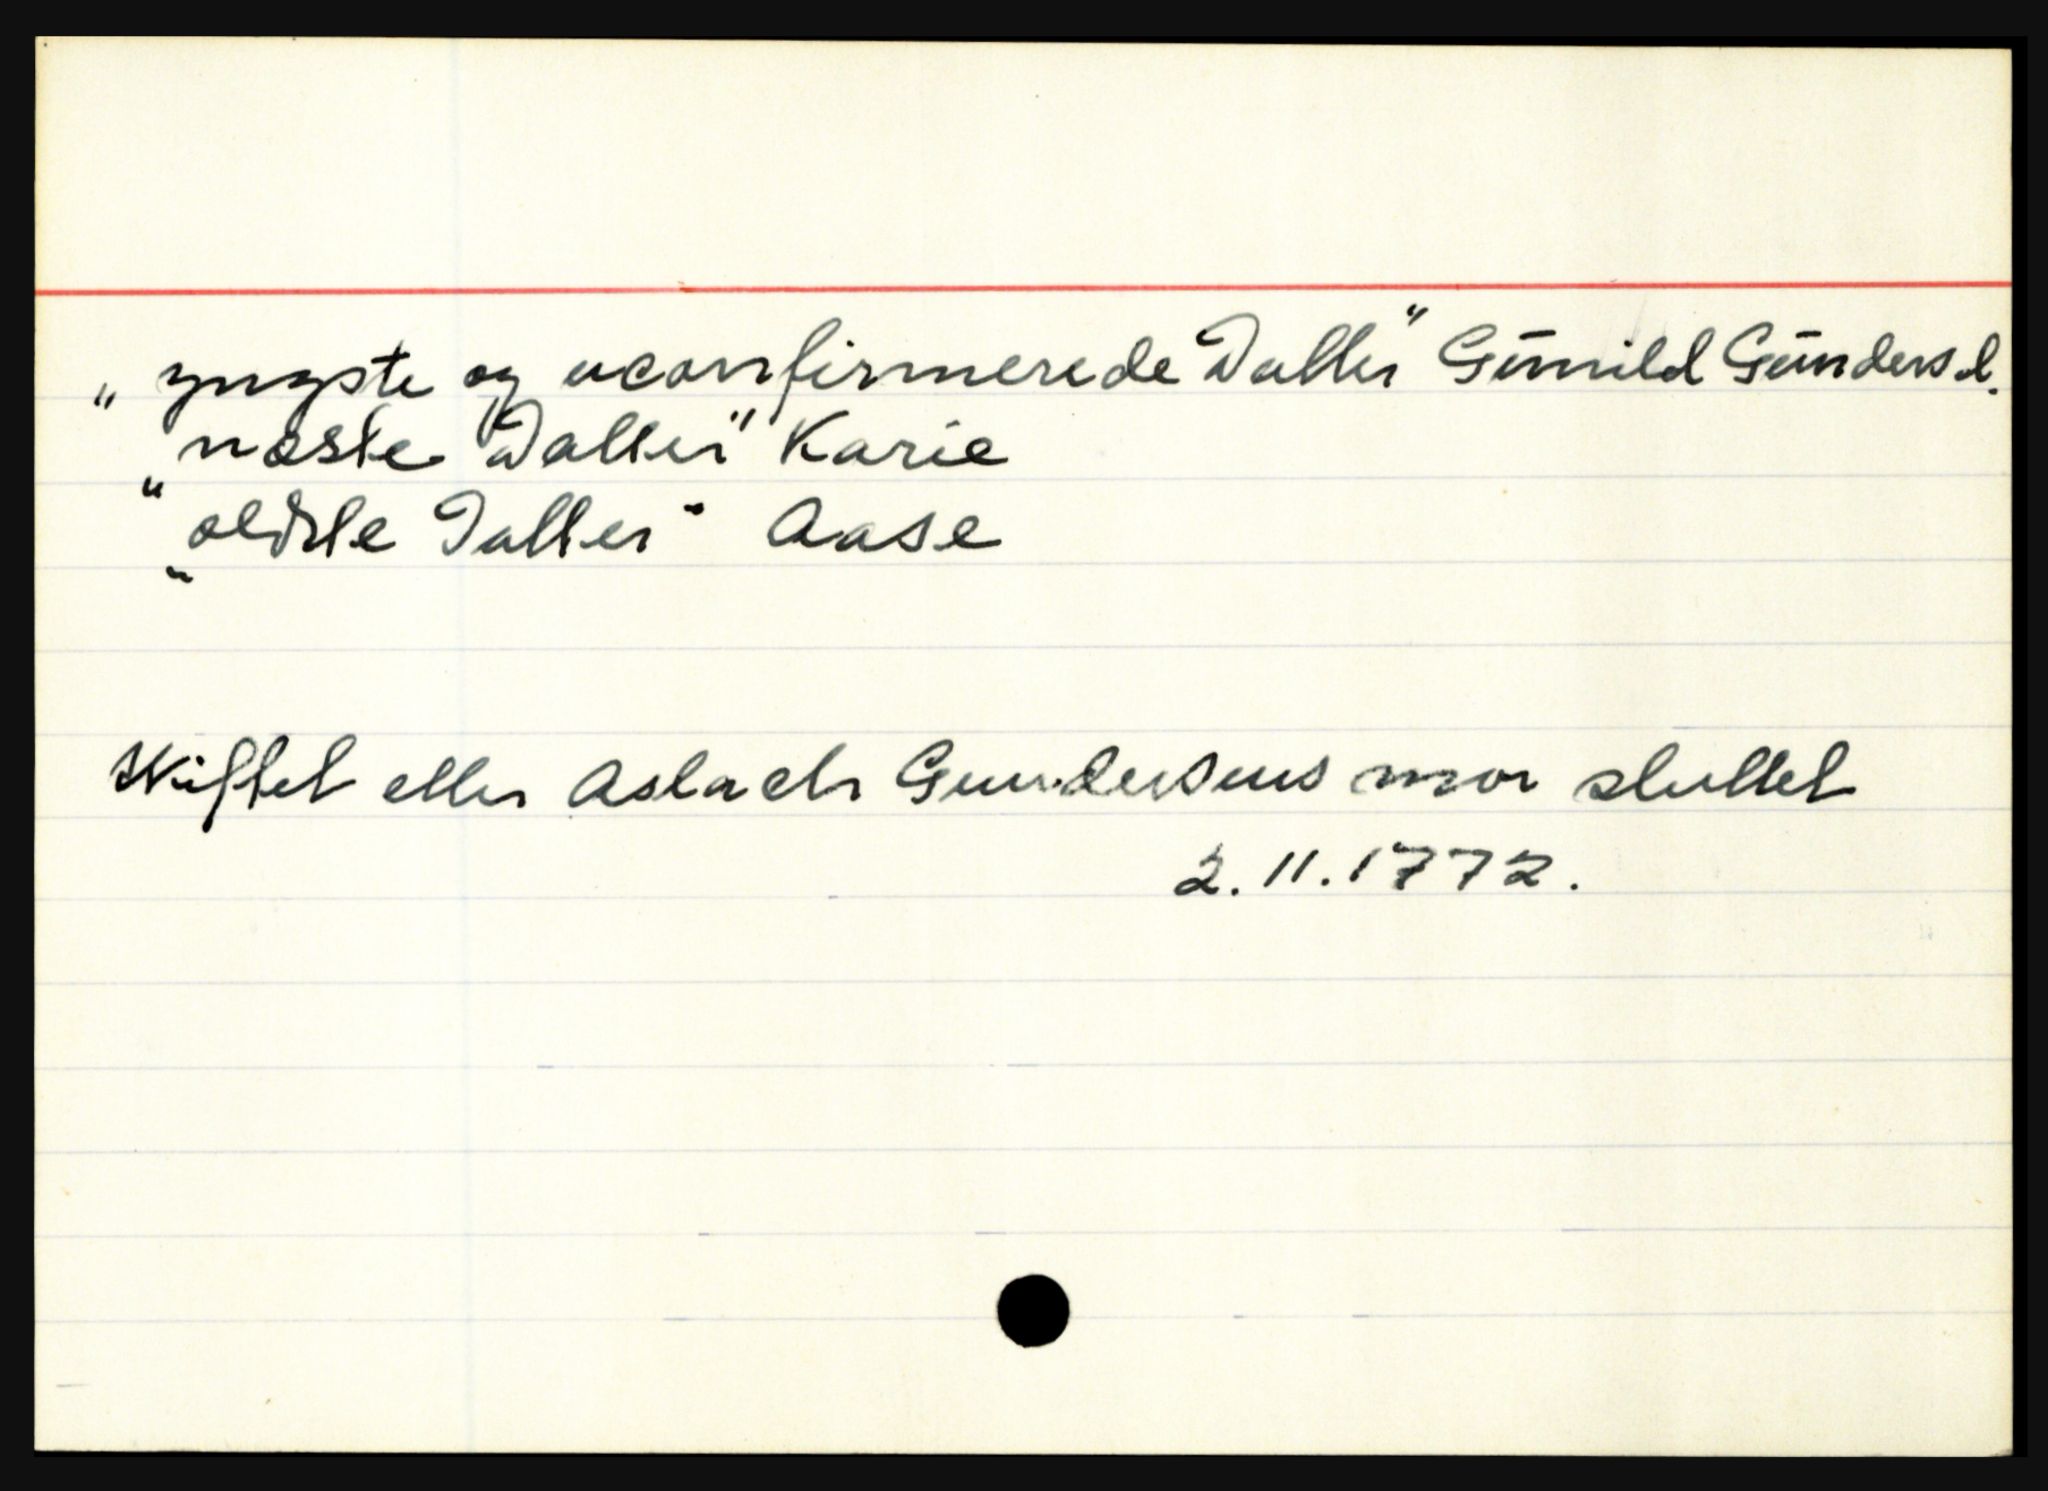 „yngste og uconfirmerede Datter" Gūnild Gūndersd.
„næste Datter" Karie
„eldste Datter" Aase
Skiftet etter Aslach Gundersens mor sluttet
2.11.1772.